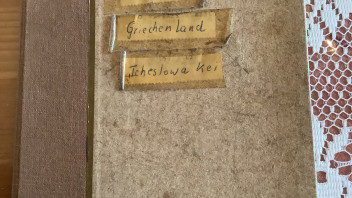 Griechenland
Tcheslowakei